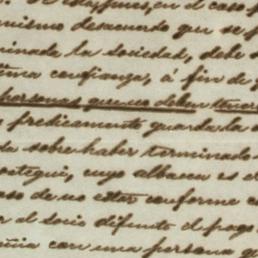 en el caso
mismo desacuerdo que se
minada la sociedad, debe
confianza, á fin de
personas que no deben tener
predicamento guarda la
da sobre haber terminado
ostegui, cuyo albacea es el
caso de no estar conforme
el socio difunto el pago
con una persona